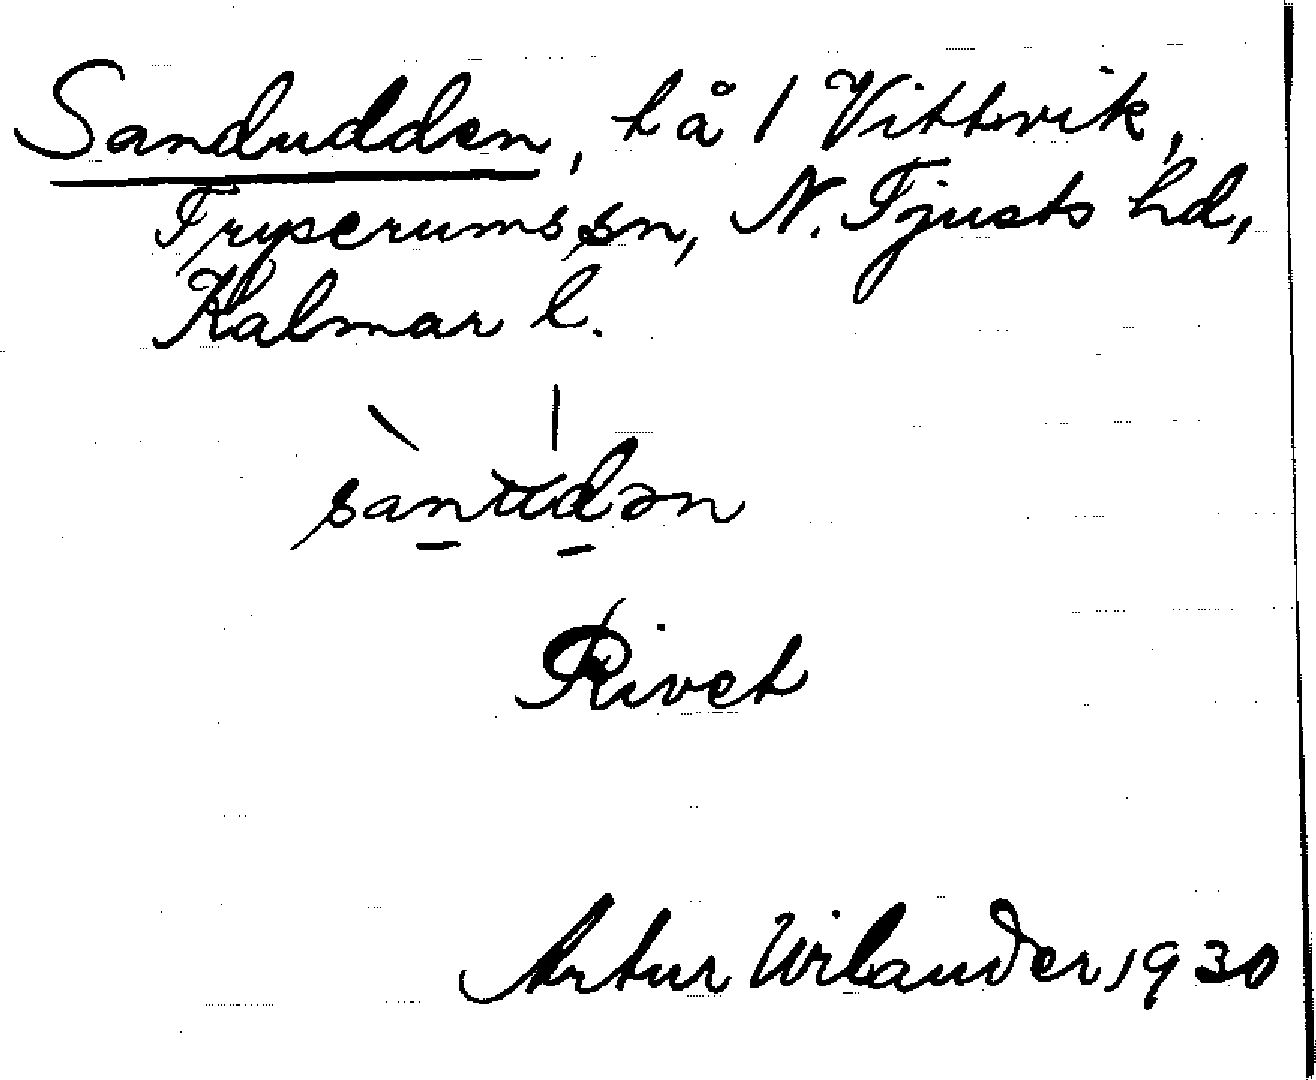 Sandudden, tå 1 Vittvik,
Tryserums sn, N. Tjusts hd,
Kalmar l.
Rivet
Artur Wilander 1930